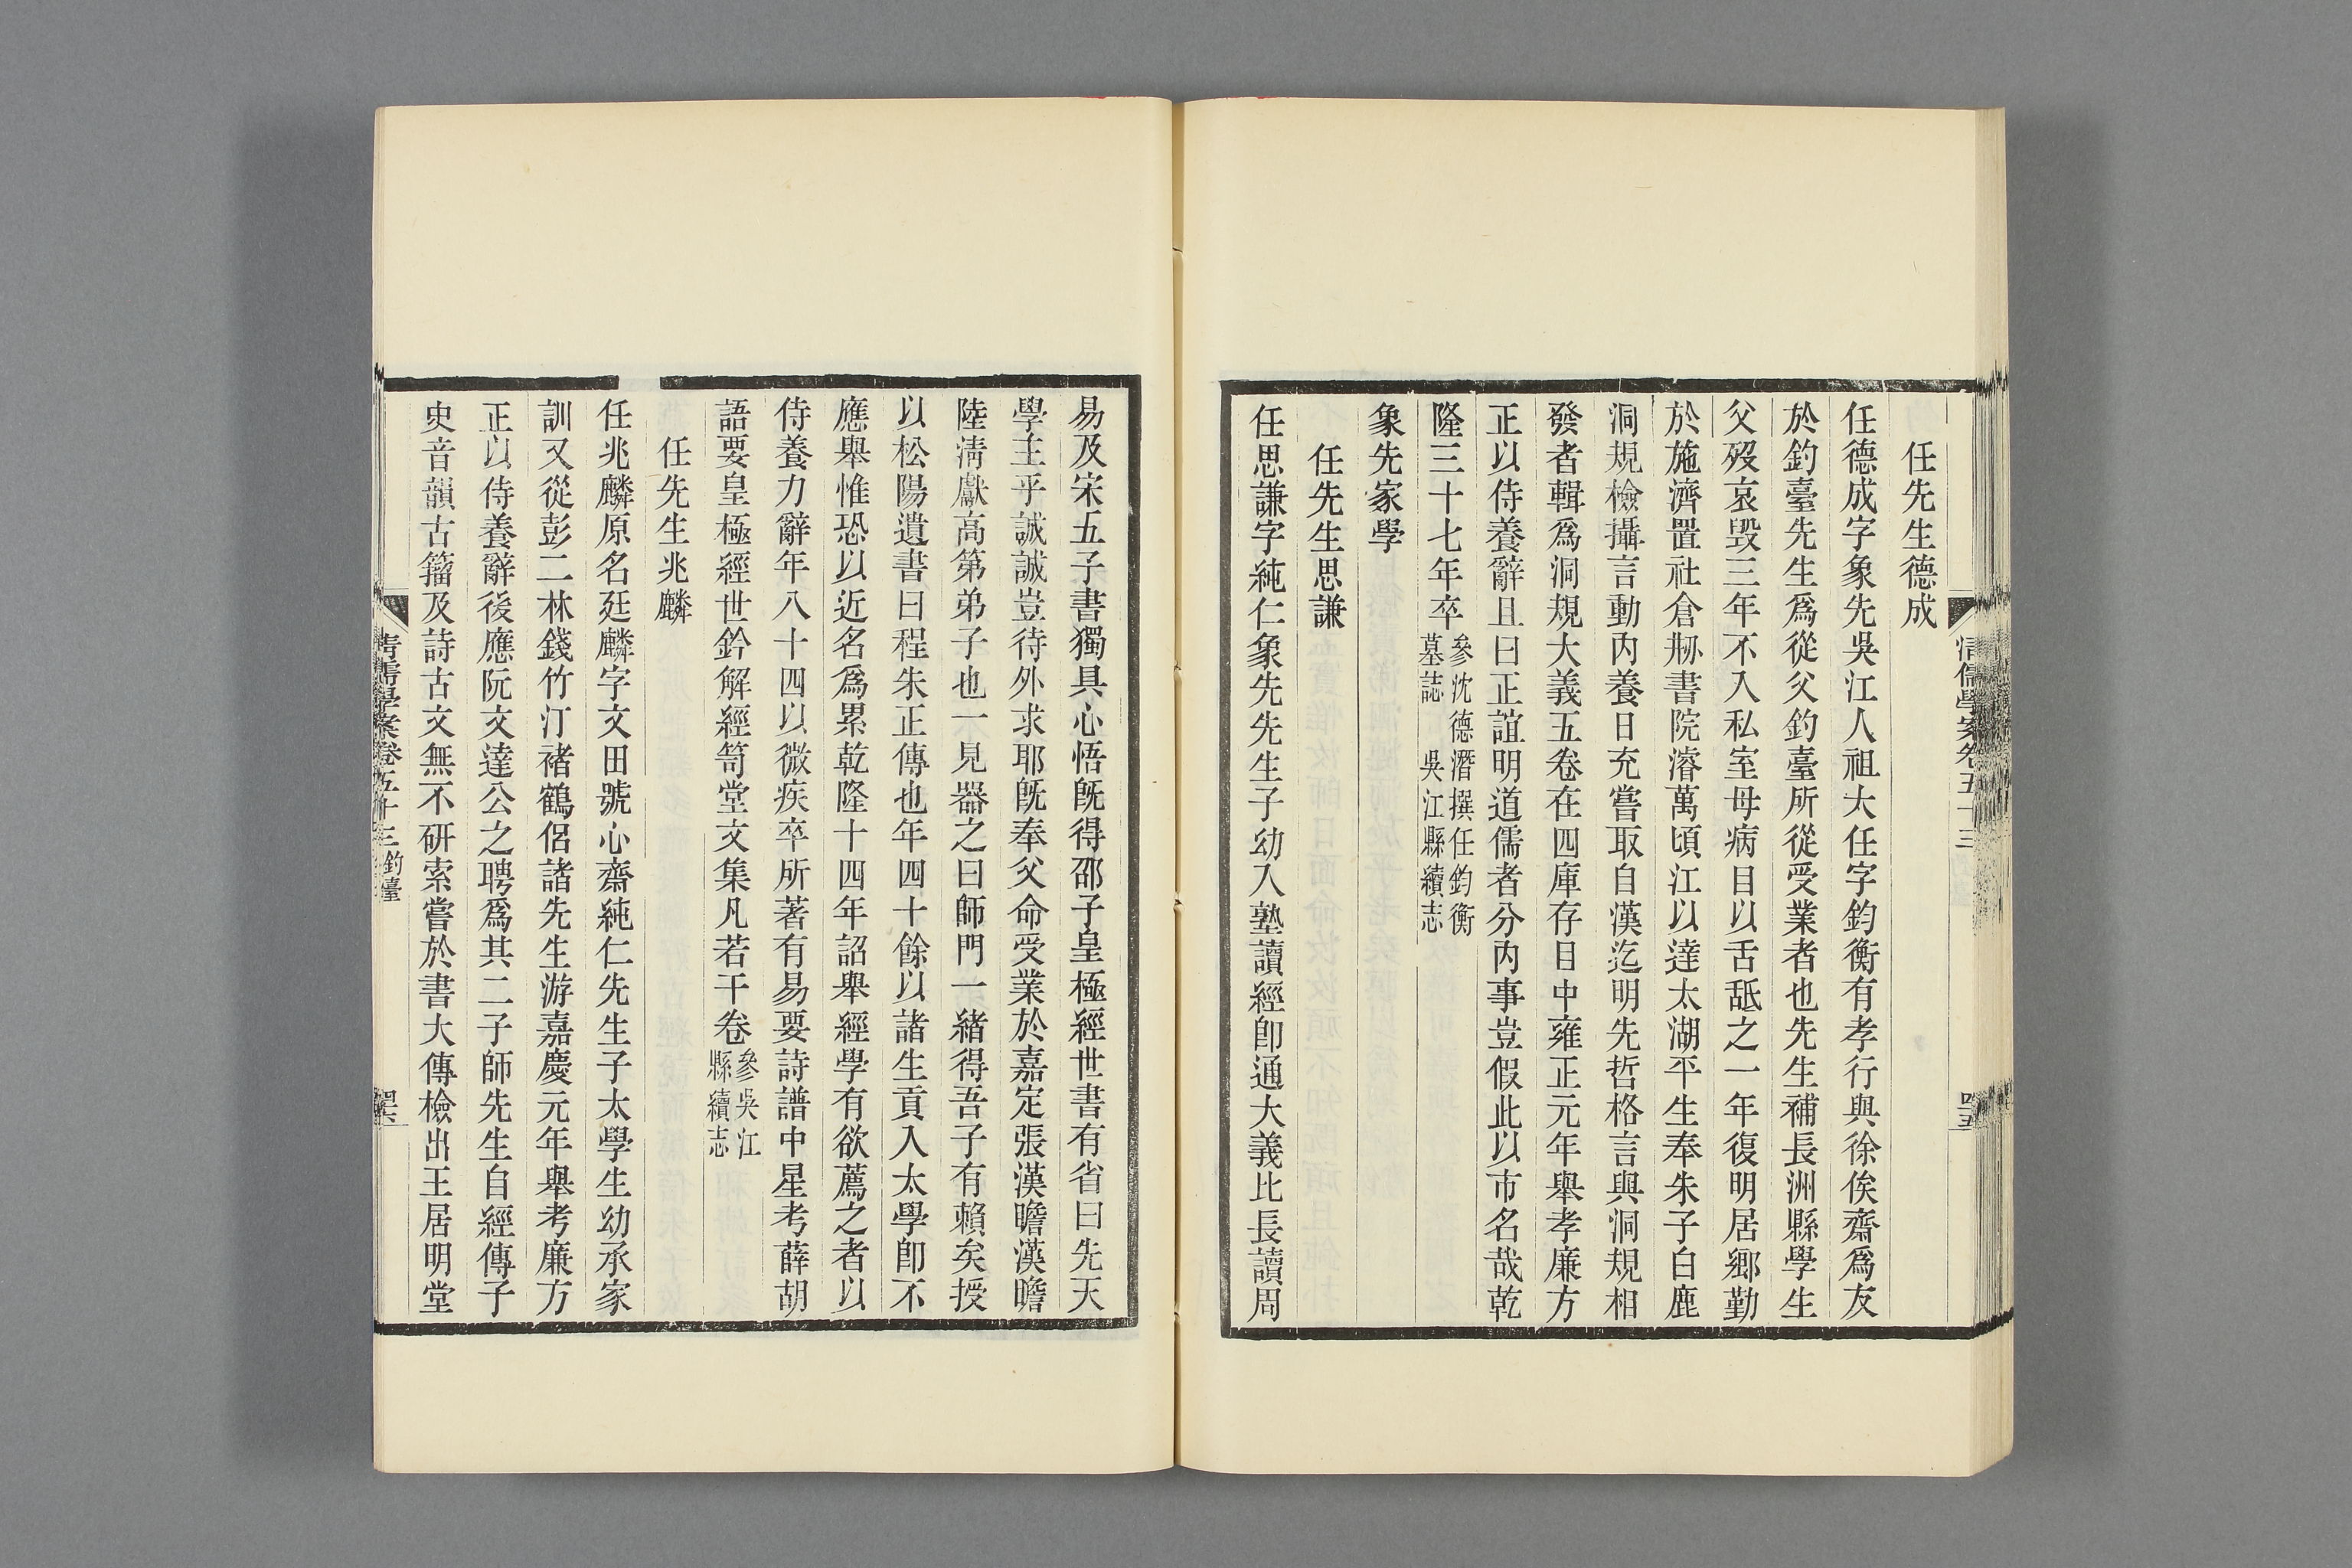 任先生德成
任德成字象先吳江人祖大任字鈞衡有孝行與徐俟齋爲友
於釣臺先生爲從父釣臺所從受業者也先生補長洲縣學生
父歿哀毀三年不入私室母病目以舌舐之一年復明居鄉勤
於施濟置社倉刱書院濬萬頃江以達太湖平生奉朱子白鹿
洞規檢攝言動內養日充嘗取自漢迄明先哲格言與洞規相
發者輯爲洞規大義五卷在四庫存目中雍正元年舉孝廉方
正以侍養辭且曰正誼明道儒者分內事豈假此以市名哉乾
隆三十七年卒參沈德潛撰任鈞衡墓誌 吳江縣續志
象先家學
任先生思謙
任思謙字純仁象先先生子幼入塾讀經卽通大義比長讀周
清儒學案卷五十三
四五
易及宋五子書獨具心悟旣得邵子皇極經世書有省曰先天
學主乎誠誠豈待外求耶旣奉父命受業於嘉定張漢瞻漢瞻
陸清獻高第弟子也一見器之曰師門一緒得吾子有賴矣授
以松陽遺書曰程朱正傳也年四十餘以諸生貢入太學卽不
應舉惟恐以近名爲累乾隆十四年詔舉經學有欲薦之者以
侍養力辭年八十四以微疾卒所著有易要詩譜中星考薛胡
語要皇極經世鈐解經笥堂文集凡若干卷參吳江縣續志
任先生兆麟
任兆麟原名廷麟字文田號心齋純仁先生子太學生幼承家
訓又從彭二林錢竹汀褚鶴侶諸先生游嘉慶元年舉孝廉方
正以侍養辭後應阮文達公之聘爲其二子師先生自經傳子
史音韻古籀及詩古文無不研索嘗於書大傳檢出王居明堂
清儒學案卷五十三 釣臺
四六